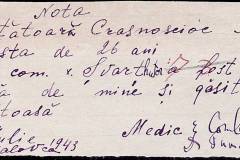 Nota
tătoară Crasnoscioc
sta de 26 ani
com. v. Svarthutor a fost
ă de mine și găsit
toasă
Iulie 1943
alovca
Medic